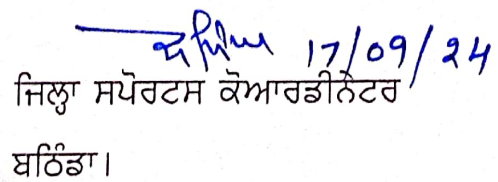 17/09/24
ਜਿਲ੍ਹਾ ਸਪੋਰਟਸ ਕੋਆਰਡੀਨੇਟਰ
ਬਠਿੰਡਾ।